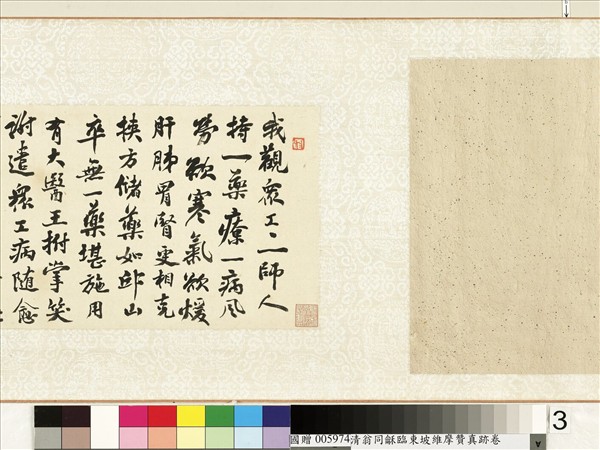 我觀衆工〻一師人
持一藥療一病風
勞欲寒氣欲煖
肝肺胃腎更相克
挾方儲藥如邱山
卒無一藥堪施用
有大醫王拊掌笑
謝遣衆工病随愈
3
國贈 005974清翁同龢臨東坡維摩贊真跡卷